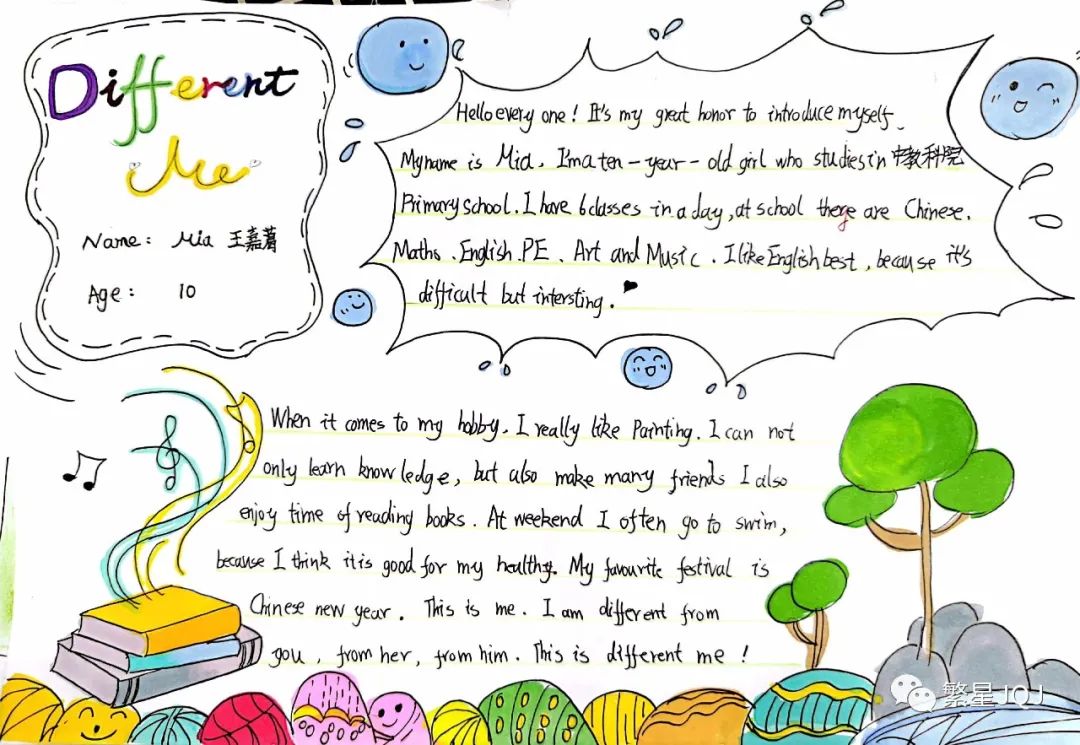 Different
Me
Name: Mia 王嘉萫
Age: 10
Hello every one! It's my great honor to introduce myself.
My name is Mia. I'm a ten-year-old girl who studies in 中教科院
Primary School. I have 6 classes in a day, at school there are Chinese.
Maths、English、PE、Art and Music. I like English best, because it's
difficult but intersting.
When it comes to my hobby. I really like Painting. I can not
only learn knowledge, but also make many friends I also
enjoy time of reading books. At weekend I often go to swim,
because I think it is good for my healthy. My favourite festival is
Chinese new year. This is me. I am different from
you, from her, from him. This is different me!
繁星JQJ